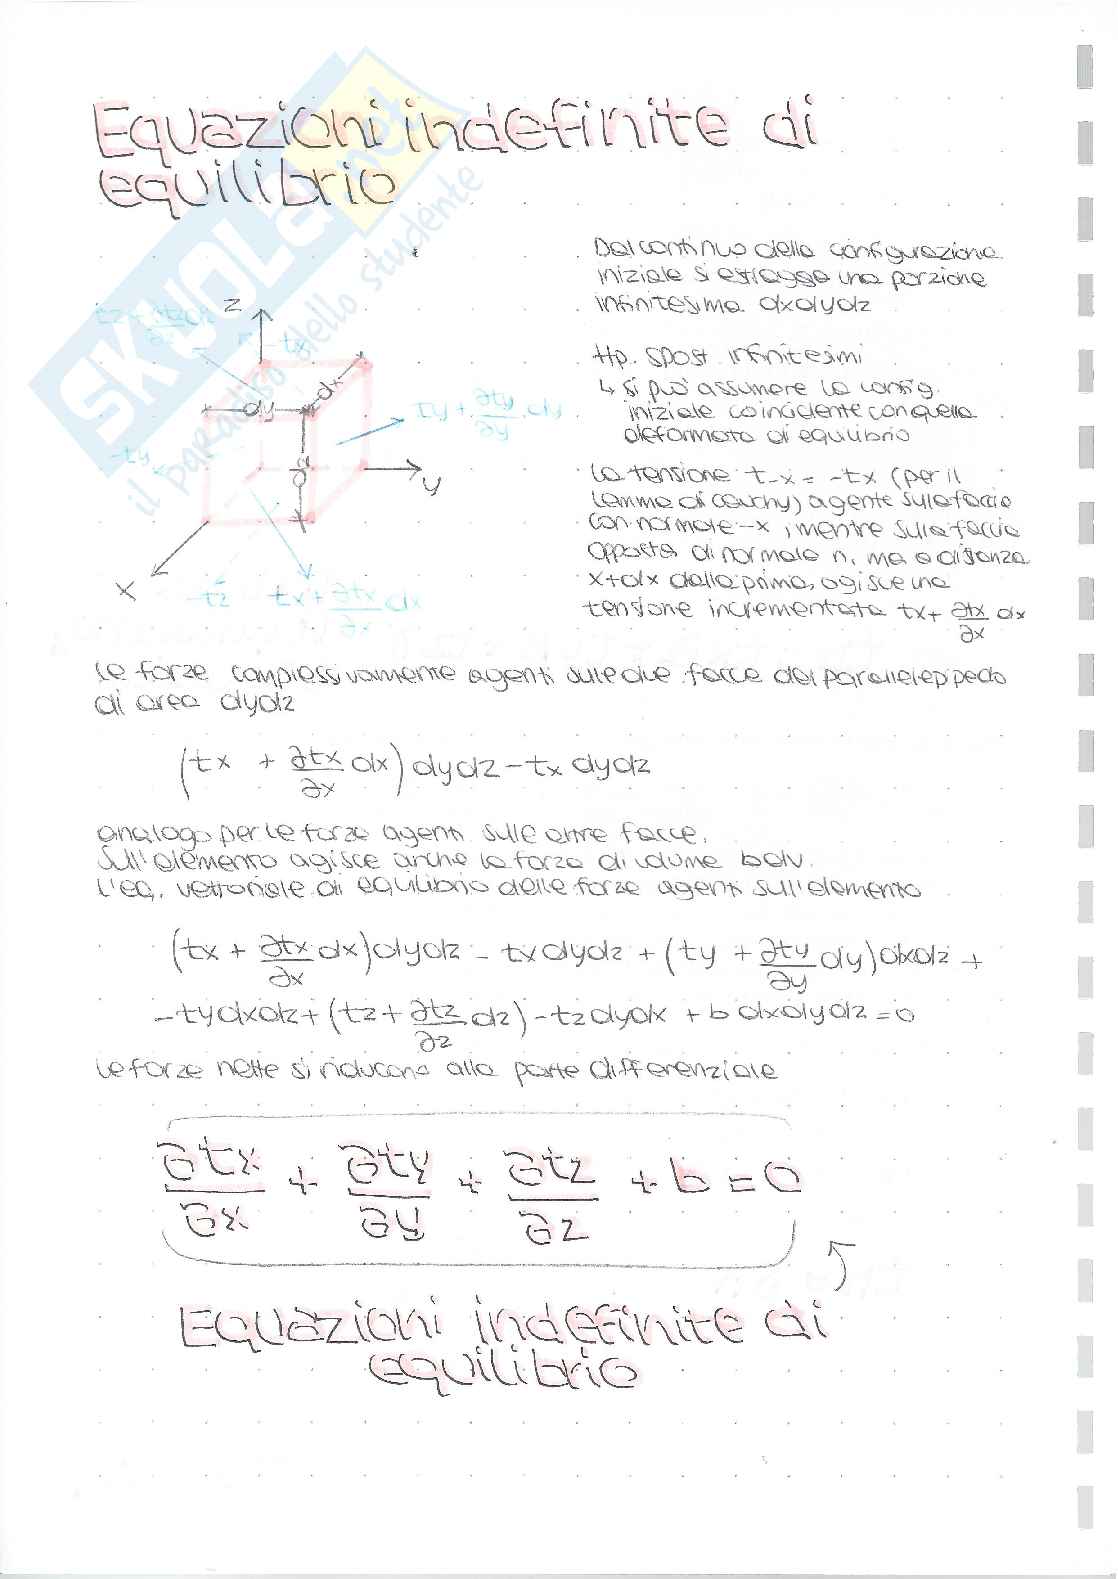 Equazioni indefinite di
equilibrio
SKUOLA.net
il paradiso dello studente
Dal continuo della configurazione
iniziale si estragga una porzione
infinitesima dxdydz
Hp. spost. infinitesimi
↳ si può assumere la config.
iniziale coincidente con quella
deformata di equilibrio
La tensione t-x = -tx (per il
lemma di cauchy) agente sulla faccia
con normale -x, mentre sulla faccia
opposta di normale n, ma a distanza
x+dx dalla prima, agisce una
tensione incrementata tx+ ∂tx/∂x dx
z
-tx
dx
dy
ty + ∂ty/∂y dy
-ty
dz
y
x
-tz
tx + ∂tx/∂x dx
Le forze complessivamente agenti sulle due facce del parallelepipedo
di area dydz
(tx + ∂tx/∂x dx) dydz - tx dydz
analogo per le forze agenti sulle altre facce.
Sull'elemento agisce anche la forza di volume bdv.
L'eq. vettoriale di equilibrio delle forze agenti sull'elemento
(tx + ∂tx/∂x dx)dydz - txdydz + (ty + ∂ty/∂y dy)dxdz +
-tydxdz + (tz + ∂tz/∂z dz) - tzdydx + b dxdydz = 0
Le forze nette si riducono alla parte differenziale
∂tx/∂x + ∂ty/∂y + ∂tz/∂z + b = 0
Equazioni indefinite di
equilibrio